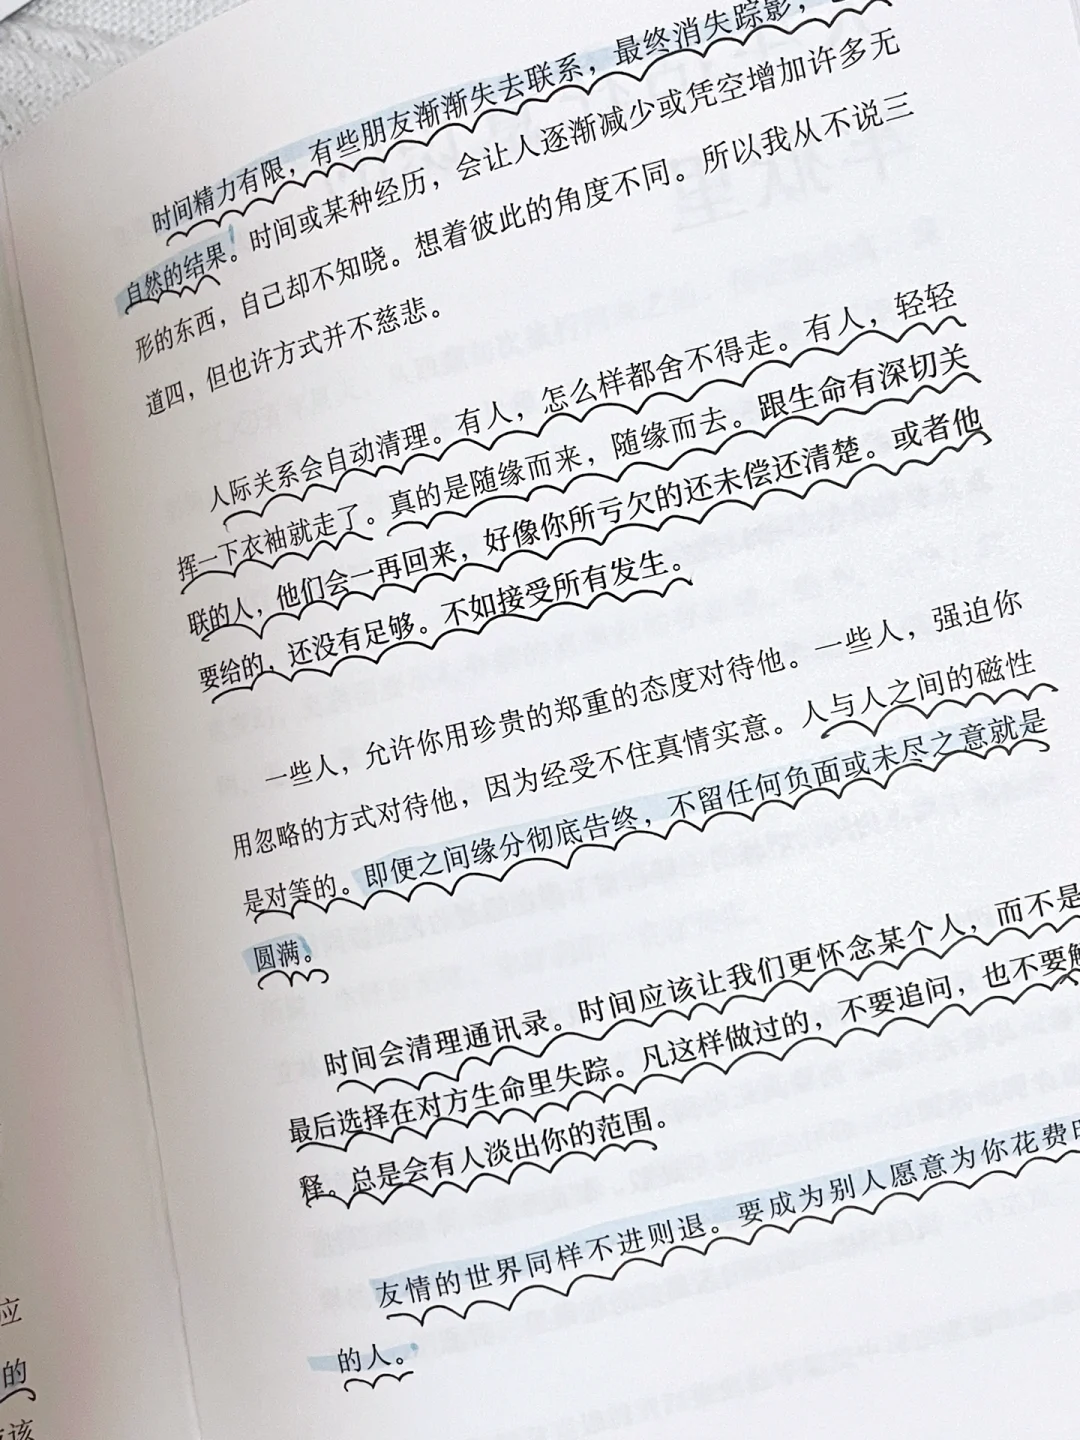 时间精力有限，有些朋友渐渐失去联系，最终消失踪影，
自然的结果。时间或某种经历，会让人逐渐减少或凭空增加许多无
形的东西，自己却不知晓。想着彼此的角度不同。所以我从不说三
道四，但也许方式并不慈悲。
人际关系会自动清理。有人，怎么样都舍不得走。有人，轻轻
挥一下衣袖就走了。真的是随缘而来，随缘而去。跟生命有深切关
联的人，他们会一再回来，好像你所亏欠的还未偿还清楚。或者他
要给的，还没有足够。不如接受所有发生。
一些人，允许你用珍贵的郑重的态度对待他。一些人，强迫你
用忽略的方式对待他，因为经受不住真情实意。人与人之间的磁性
是对等的。即便之间缘分彻底告终，不留任何负面或未尽之意就是
圆满。
时间会清理通讯录。时间应该让我们更怀念某个人，而不是
最后选择在对方生命里失踪。凡这样做过的，不要追问，也不要解
释。总是会有人淡出你的范围。
友情的世界同样不进则退。要成为别人愿意为你花费时
的人。
应
的
该